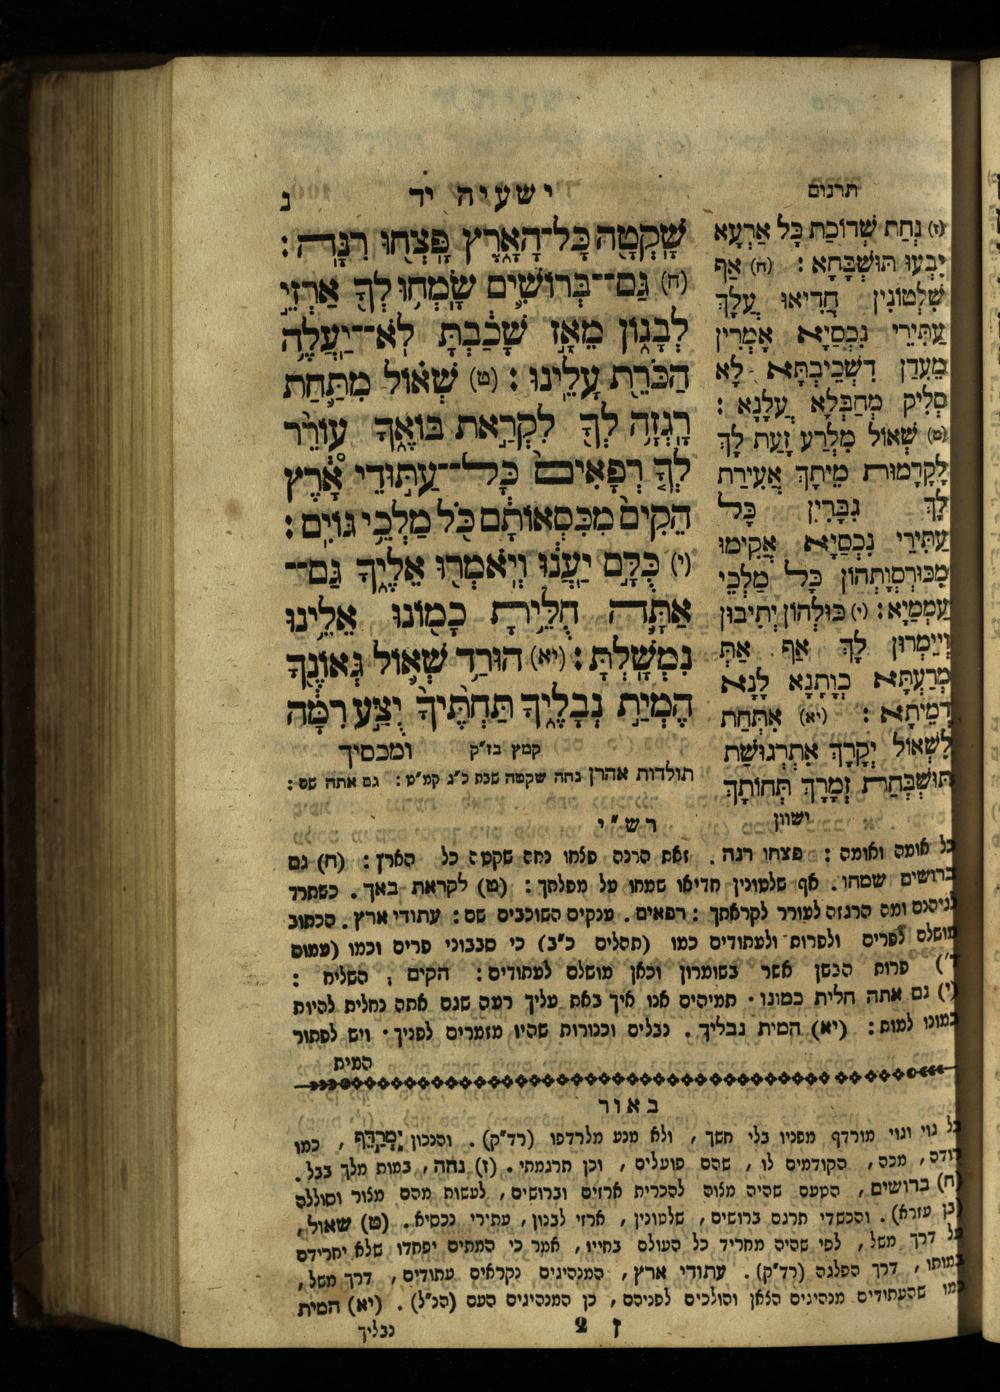 תרגום
ישעיה יד
נ
שָׁקְטָה כָּל־הָאָרֶץ פָּצְחוּ רִנָּה:
(ח) גַּם־בְּרוֹשִׁים שָׂמְחוּ לְךָ אַרְזֵי
לְבָנוֹן מֵאָז שָׁכַבְתָּ לֹא־יַעֲלֶה
הַכֹּרֵת עָלֵינוּ: (ט) שְׁאוֹל מִתַּחַת
רָגְזָה לְךָ לִקְרַאת בּוֹאֶךָ עוֹרֵר
לְךָ רְפָאִים כָּל־עַתּוּדֵי אָרֶץ
הֵקִים מִכִּסְאוֹתָם כֹּל מַלְכֵי גוֹיִם:
(י) כֻּלָּם יַעֲנוּ וְיֹאמְרוּ אֵלֶיךָ גַּם־
אַתָּה חֻלֵּיתָ כָמוֹנוּ אֵלֵינוּ
נִמְשָׁלְתָּ: (יא) הוּרַד שְׁאוֹל גְּאוֹנֶךָ
הֶמְיַת נְבָלֶיךָ תַּחְתֶּיךָ יֻצַּע רִמָּה
קמץ בז"ק ומכסיך
תולדות אהרן נחה שקטה שבת כ"ג קמ"ט: גם אתה שם:
(ז) נְחַת שְׁדוֹכַת כָּל אַרְעָא
יְבָעוּ תּוּשְׁבָּחָא: (ח) אַף
שִׁלְטוֹנִין חֲדִיאוּ עֲלָךְ
עַתִּירֵי נִכְסַיָּא אָמְרִין
מֵעִדַן דִּשְׁכֵיבְתָּא לָא
סְלֵיק מְחַבְּלָא עֲלָנָא:
(ט) שְׁאוֹל מִלְּרַע זָעַת לָךְ
לְקָדָמוּת מֵיתָךְ אֲעִירַת
לָךְ גִּבָּרִין כָּל
עַתִּירֵי נִכְסַיָּא אֲקִימוּ
מִכּוּרְסְוָתְהוֹן כָּל מַלְכֵי
עַמְמַיָּא: (י) כּוּלְּהוֹן יְתִיבוּן
וְיֵימְרוּן לָךְ אַף אַתְּ
מְרַעְתָּא כְוָתָנָא לָנָא
דְמֵיתָא: (יא) אִתְּחַת
לִשְׁאוֹל יְקָרָךְ אִתְרְגוּשַׁת
תּוּשְׁבְּחַת זְמָרָךְ תְּחוֹתָךְ
ישוון
רש"י
כל אומה ואומה: פצחו רנה. זאת הרנה פצחו נחה שקטה כל הארץ: (ח) גם
ברושים שמחו. אף שלטונין חדיאו שמחו על מפלתך: (ט) לקראת באך. כשתרד
לגיהנם ומה הרגזה לעורר לקראתך: רפאים. ענקים השוכבים שם: עתודי ארץ. הכתוב
מושלם לפרים ולפרות ולעתודים כמו (תהלים כ"ב) כי סבבוני פרים וכמו (עמוס
ד') פרות הבשן אשר בשומרון וכאן מושלם לעתודים: הקים, השליח:
(י) גם אתה חלית כמונו. תמיהים אנו איך באת עליך רעה שגם אתה נחלית להיות
כמונו למות: (יא) המית נבליך. נבלים וכנורות שהיו מזמרים לפניך. ויש לפתור
המית
באור
כל גוי וגוי מורדף מפניו בלי חשך, ולא מנע מלרדפו (רד"ק). והנכון יְמֻרְדָּף, כמו
רודה, מכה, הקודמים לו, שהם פועלים, וכן תרגמתי. (ז) נחה, במות מלך בבל.
(ח) ברושים, הטעם שהיה מצוה להכרית ארזים וברושים, לעשות מהם מצור וסוללה
(בן עזרא). והכשדי תרגם ברושים, שלטונין, ארזי לבנון, עתירי נכסיא. (ט) שאול,
על דרך משל, לפי שהיה מחריד כל העולם בחייו, אמר כי המתים יפחדו שלא יחרידם
במותו, דרך הפלגה (רד"ק). עתודי ארץ, המנהיגים נקראים עתודים, דרך משל,
כמו שהעתודים מנהיגים הצאן והולכים לפניהם, כן המנהיגים העם (הנ"ל). (יא) המית
ז 2
נבליך